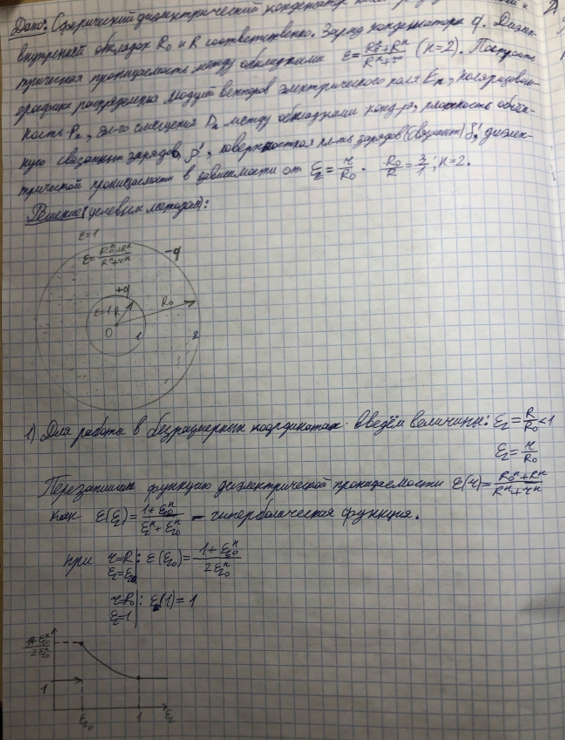 Дано: Сферический диэлектрический конденсатор
внутренней обкладок R₀ и R соответственно. Заряд конденсатора q. Диэлек-
трическая проницаемость между обкладками ε = (R₀ⁿ+Rⁿ)/(Rⁿ+rⁿ) (n=2). Построить
графики распределения модулей векторов электрического поля Eₙ, поляризован-
ность Pₙ, эл-го смещения Dₙ между обкладками конд-ра, плотность объём-
ную связанных зарядов ρ', поверхностная пл-ть зарядов (связанных) σ', диэлек-
трической проницаемости в зависимости от ξ = r/R₀. R₀/R = 3/1; n=2.
Решение (целевым методом):
ε=1
ε = (R₀ⁿ+Rⁿ)/(Rⁿ+rⁿ)
-q
+q
ε=1 R
R₀
0 1 2
1) Для работы в безразмерных координатах введём величины: ξ₀ = R/R₀ < 1
ξ = r/R₀
Перезапишем функцию диэлектрической проницаемости ε(r) = (R₀ⁿ+Rⁿ)/(Rⁿ+rⁿ)
как ε(ξ) = (1+ξ₀ⁿ)/(ξⁿ+ξ₀ⁿ) - гиперболическая функция.
при r=R: ε(ξ₀) = (1+ξ₀ⁿ)/(2ξ₀ⁿ)
ξ=ξ₀
r=R₀: ε(1) = 1
ξ=1
(1+ξ₀ⁿ)/(2ξ₀ⁿ)
1
ξ₀ 1 ξ